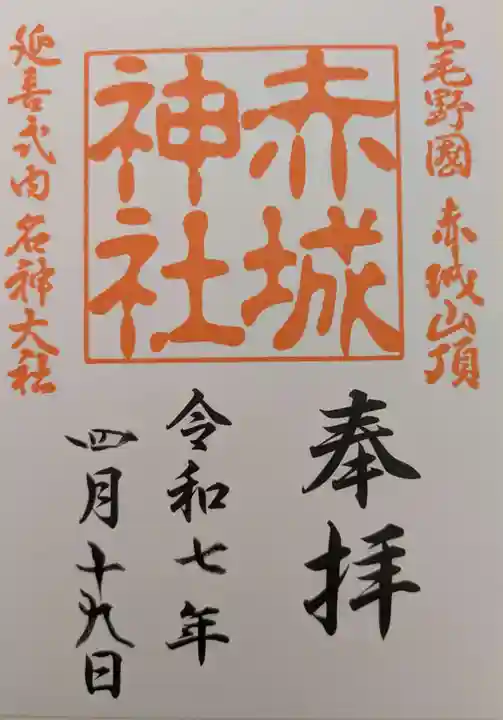 上毛野國 赤城山頂
赤城
神社
延喜式内 名神大社
奉拝
令和七年
四月十九日